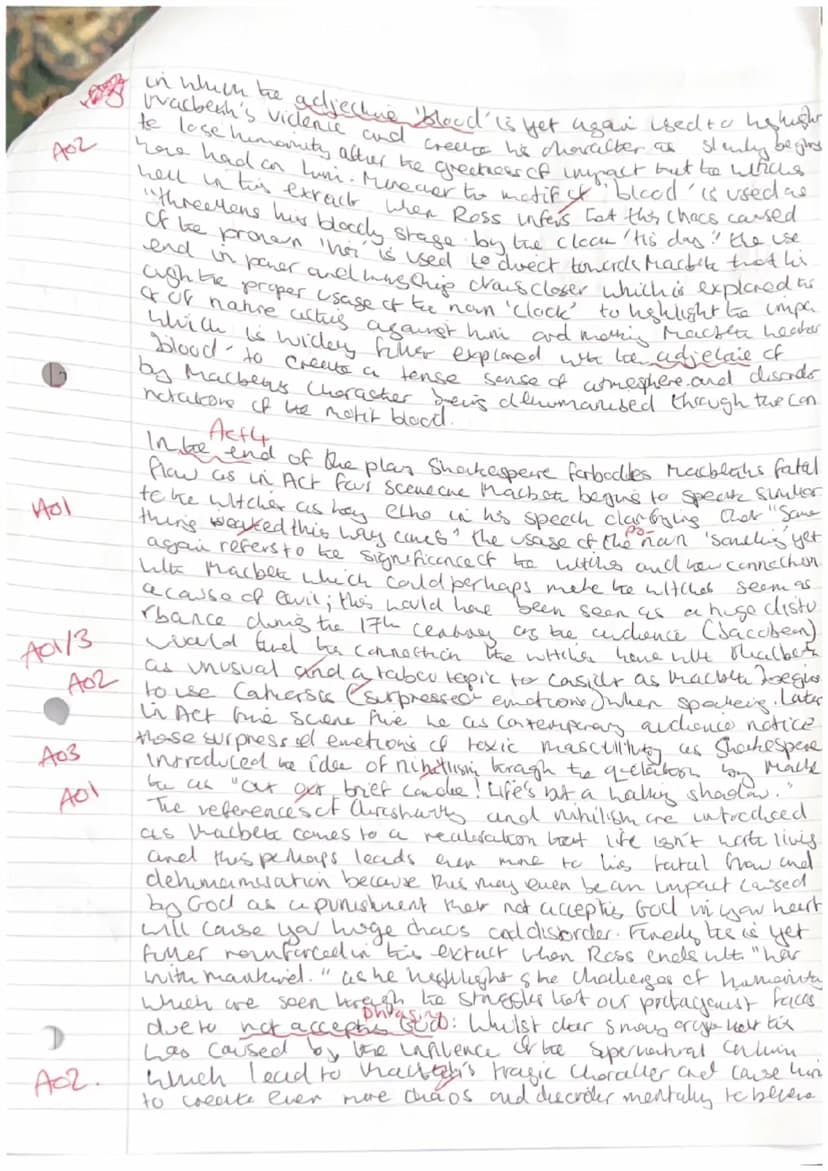 in which the adjective 'blood' is yet again used to highlight
Macbeth's violence and create his character as slowly begins
AO2
to lose humanity after the greatness of impact but the witches
have had on him. Moreover the motif of 'blood' is used as
well in this extract when Ross infers that this chaos caused
"threatens his bloody stage by the clock 'tis day." the use
of the pronoun 'his' is used to direct towards Macbeth that his
end in power and kingship draws closer which is explored thr
ough the proper usage of the noun 'clock' to highlight the impa
ct of nature acting against him and making Macbeth
which is widely futher explored with the adjetaie of
'blood' to create a tense sense of atmosphere and disorder
by Macbeths character being dehumanised through the con
notations of the motif blood.
Act 4
In the end of the play Shakespeare Macbeths fatal
flaw as in Act four scene one Macbeth begins to speak similar
AO1
to the witches as they echo in his speech clarifying that "Some
thing wicked this way comes" the usage of the pro-noun 'something' yet
again refers to the significance of the witches and how connection
with Macbeth which could perhaps make the witches seem as
a cause of evil; this would have been seen as a huge distu
rbance during the 17th century as the audience (Jaccobean)
AO1/3
would find the connection the witches have with Macbeth
AO2
as unusual and a taboo topic to consider as Macbeth begins
to use Catharsis (surpressed emotions) when speaking. Later
in Act five scene five he as contemporary audience notice
AO3
those surpressed emotions of toxic masculinity as Shakespere
introduced the idea of nihilism through the quotation by Macb
AO1
eth as "Out out brief candle! Life's but a walking shadow."
The references of and nihilism are introduced
as Macbeth comes to a realisation that life isn't worth living
and this perhaps leads even more to his fatal flaw and
dehumanisation because this may even be an impact caused
by God as a punishment that not accepting God in your heart
will cause you huge chaos and disorder. Finally, this is yet
futher reinforced in this extract when Ross ends with "war
with mankind." as he highlights the challenges of humanity
which are seen through the struggles that our protagonist faces
phrasing
due to not accepting God: Whilst clear s may argue that this
was caused by the influence of the supernatural
AO2.
which lead to Macbeth's tragic character and cause him
to create even more chaos and disorder mentally to believe